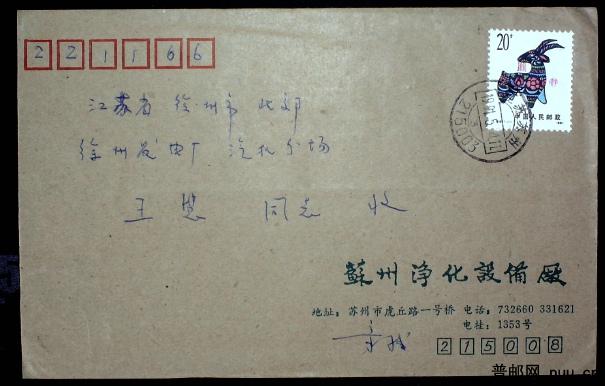 221166
20分
中国人民邮政
江苏省 徐州市 北郊
徐州发电厂 汽机分场
王 慧 同志 收
蘇州净化設備廠
地址: 苏州市虎丘路一号桥 电话: 732660 331621
电挂: 1353号
215008
普邮网 puu.cn